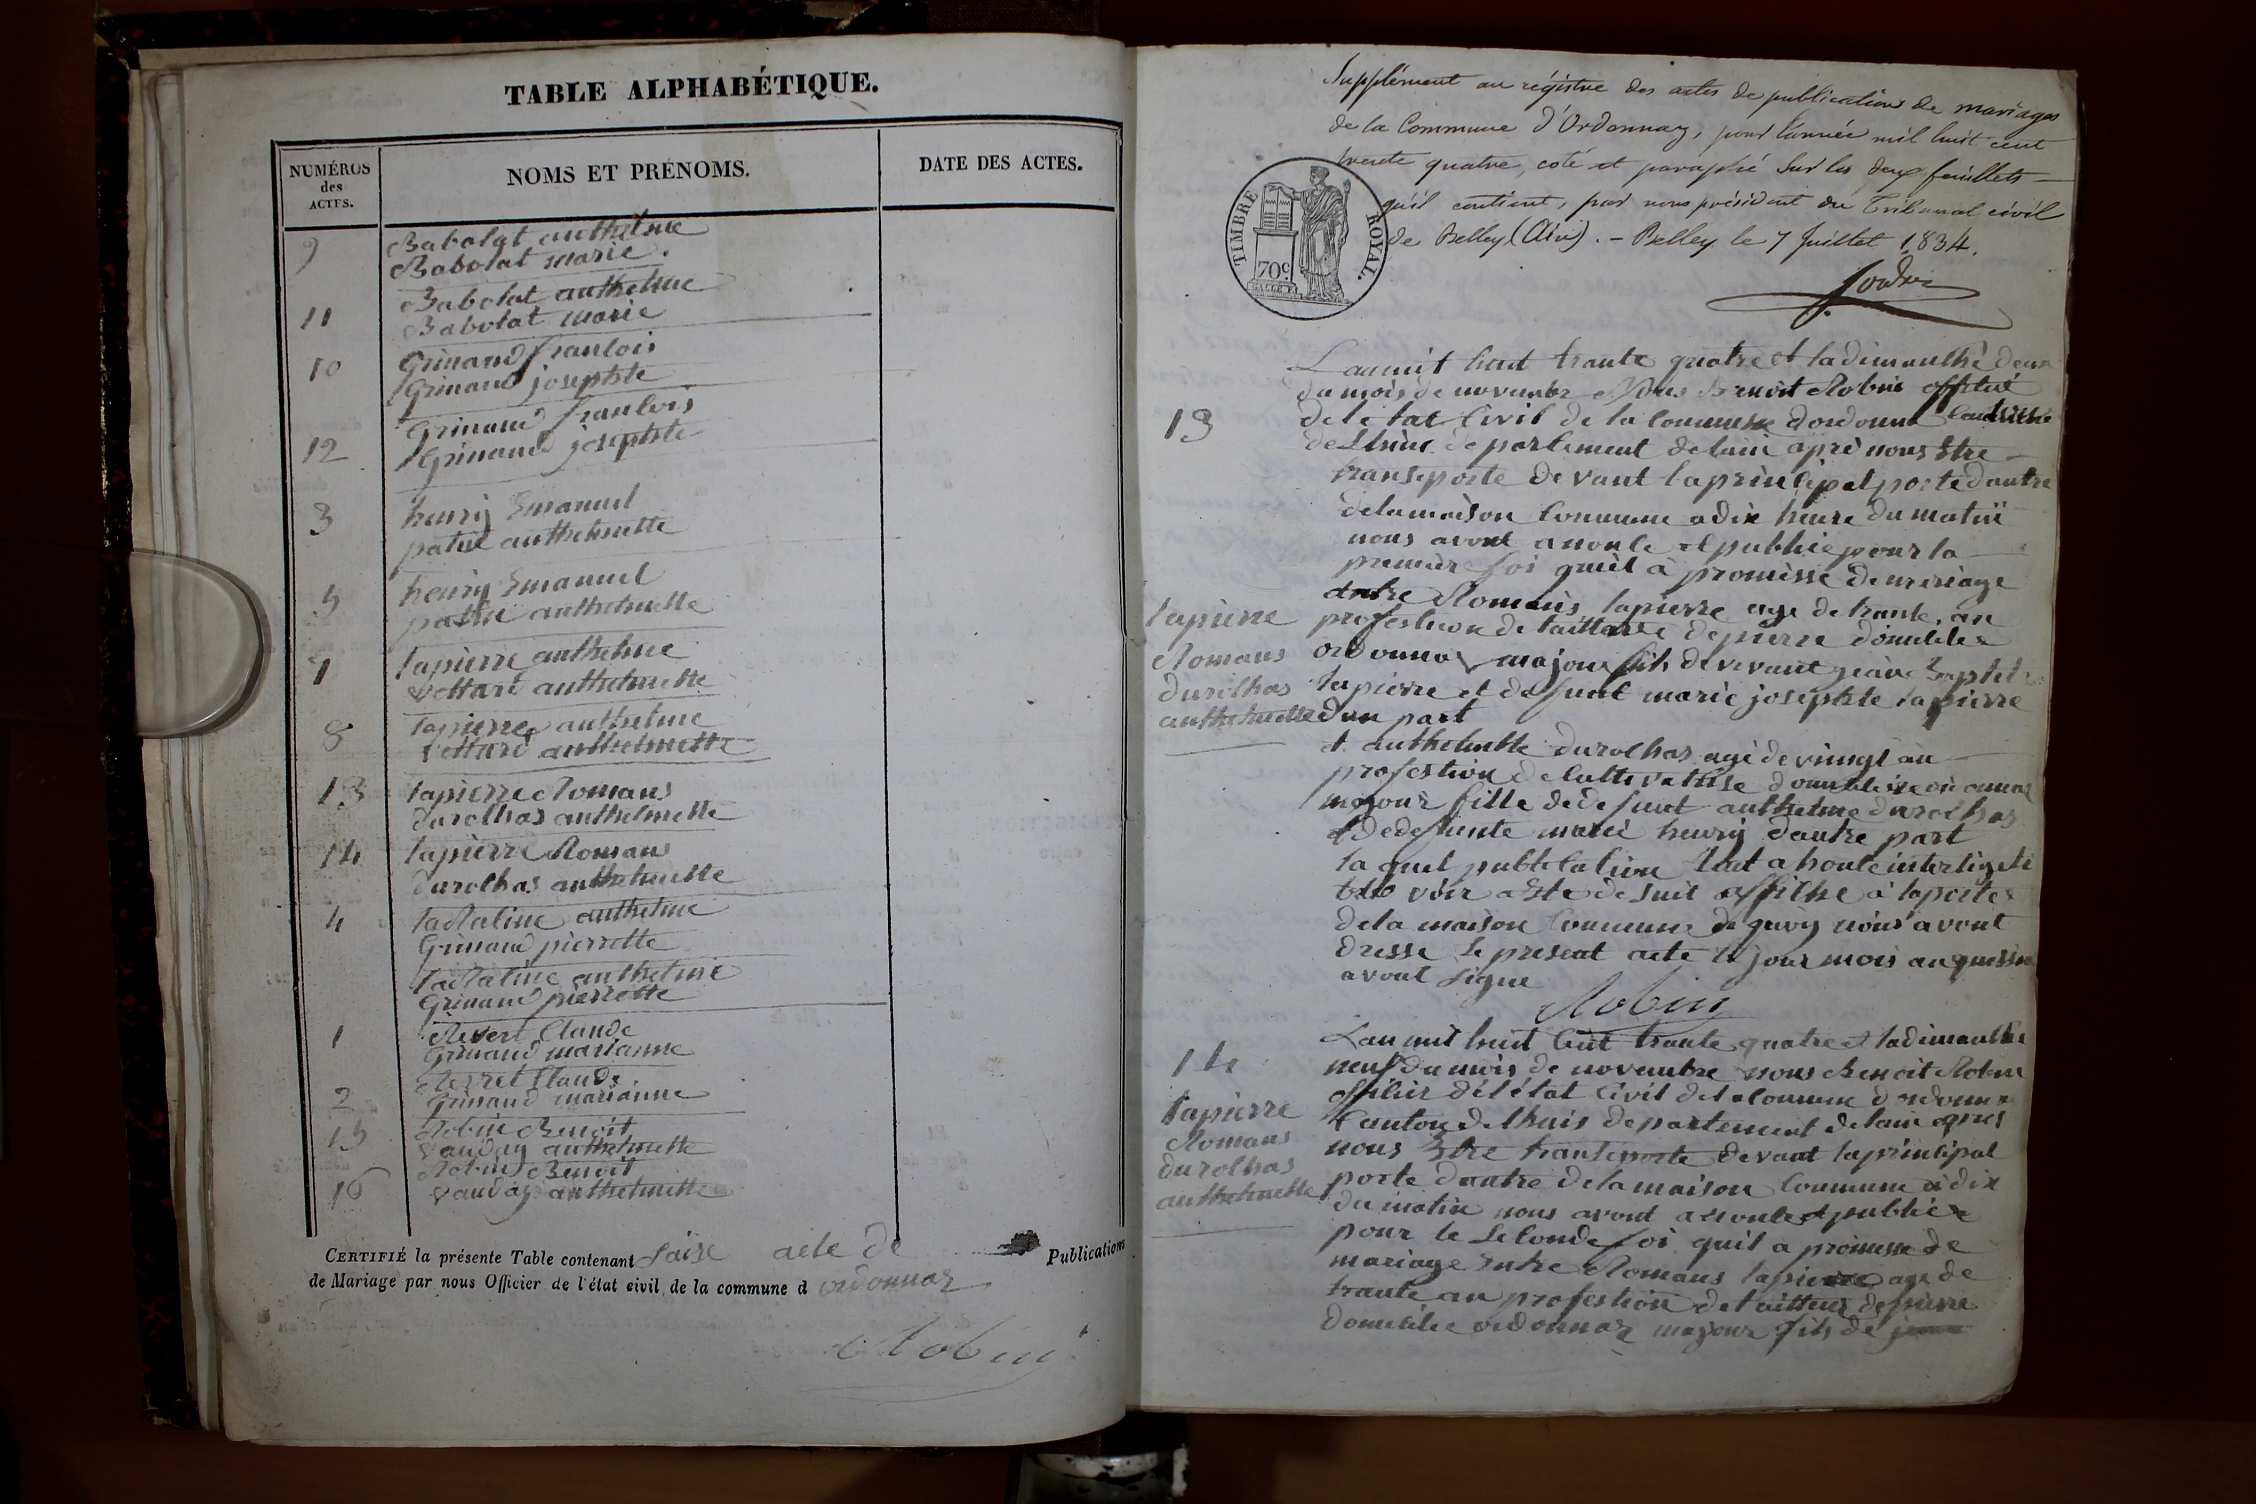 TABLE ALPHABÉTIQUE.
NUMÉROS
des
ACTES.
NOMS ET PRÉNOMS.
DATE DES ACTES.
9
Babolat anthelme
Babolat marie.
11
Babolat anthelme
Babolat marie
10
Grinand franlois
Grinand josephte
12
Grinand franlois
Grinand josephte
3
henriy Emanuel
anthelmette
5
henriy Emanuel
anthelmette
7
lapierre anthelme
vettard anthelmette
8
lapierre anthelme
vettard anthelmette
13
lapierre Romans
durolhas anthelmette
14
lapierre Romans
durolhas anthelmette
4
anthelme
Grinand pierrette
anthelme
Grinand pierrette
1
Claude
Grinand marianne
2
Claude
Grinand marianne
15
Robin Benoit
vauday anthelmette
16
Robin Benoit
vauday anthelmette
CERTIFIÉ la présente Table contenant saise acte de Publications
de Mariage par nous Officier de l'état civil de la commune d ordonnaz
Robin
Supplément au régistre des actes de publications de mariages
de la Commune d'Ordonnaz, pour l'année mil huit cent
trente quatre, coté et paraphé sur les deux feuillets
qu'il contient, par nous président du Tribunal civil
de Belley (Ain). - Belley le 7 Juillet 1834.
TIMBRE ROYAL.
70c
13
Lan mit huit trante quatre et la dimanlhe deux
du mois de novembre Nous Benoit Robin
de le tat Civil de la Commune dordonna
de Lhuis departement delain aprè nous Etre
transeporte devant laprinlipal porte dantre
dela maison Commune a dix heure du matin
nous avont anonle et publie pour la
premiere foi quil à promisse de mariage
antre Romans lapierre age de trante an
profestion de taillaire de pierre domilile
ordonnaz majour fils de vivant
lapierre et defunt marie josephte lapierre
dun part
lapierre
Romans
durolhas
anthelmette
et anthelmette durolhas agé de viingt an
profestion de Cultivatrise
majour fille de defunt anthelme durolhas
et de defunte marie henriy dautre part
la quel publilation
voir a Ete de suit affilhe a laporte
dela maison Commune de quoy nous avont
dresse le present acte le jour mois an
avont signe
Robin
14
Lan mil huit Cent trante quatre et la dimanlhe
neuf du mois de novembre nous Benoit Robin
offilier del état Civil del a Commune dordonna
Canton de lhuis departement delain apres
nous Etre transeporte devant laprinlipal
porte dantre dela maison Commune a dix
du matin nous avont anonle et publie
pour le Selonde foi quil a promesse de
mariage entre Romans lapierre age de
trante an profestion de tailleur de pierre
Domilile ordonnaz majour fils de
lapierre
Romans
durolhas
anthelmette